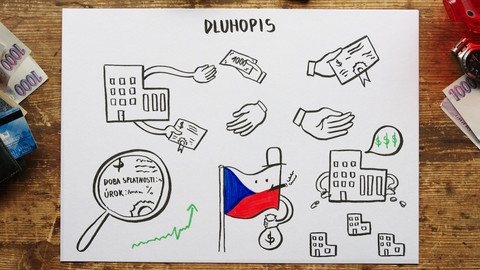 DLUHOPIS
1000
$
$
$$$
$
DOBA SPLATNOSTI:
ÚROK: %
$
1000
1000
1000